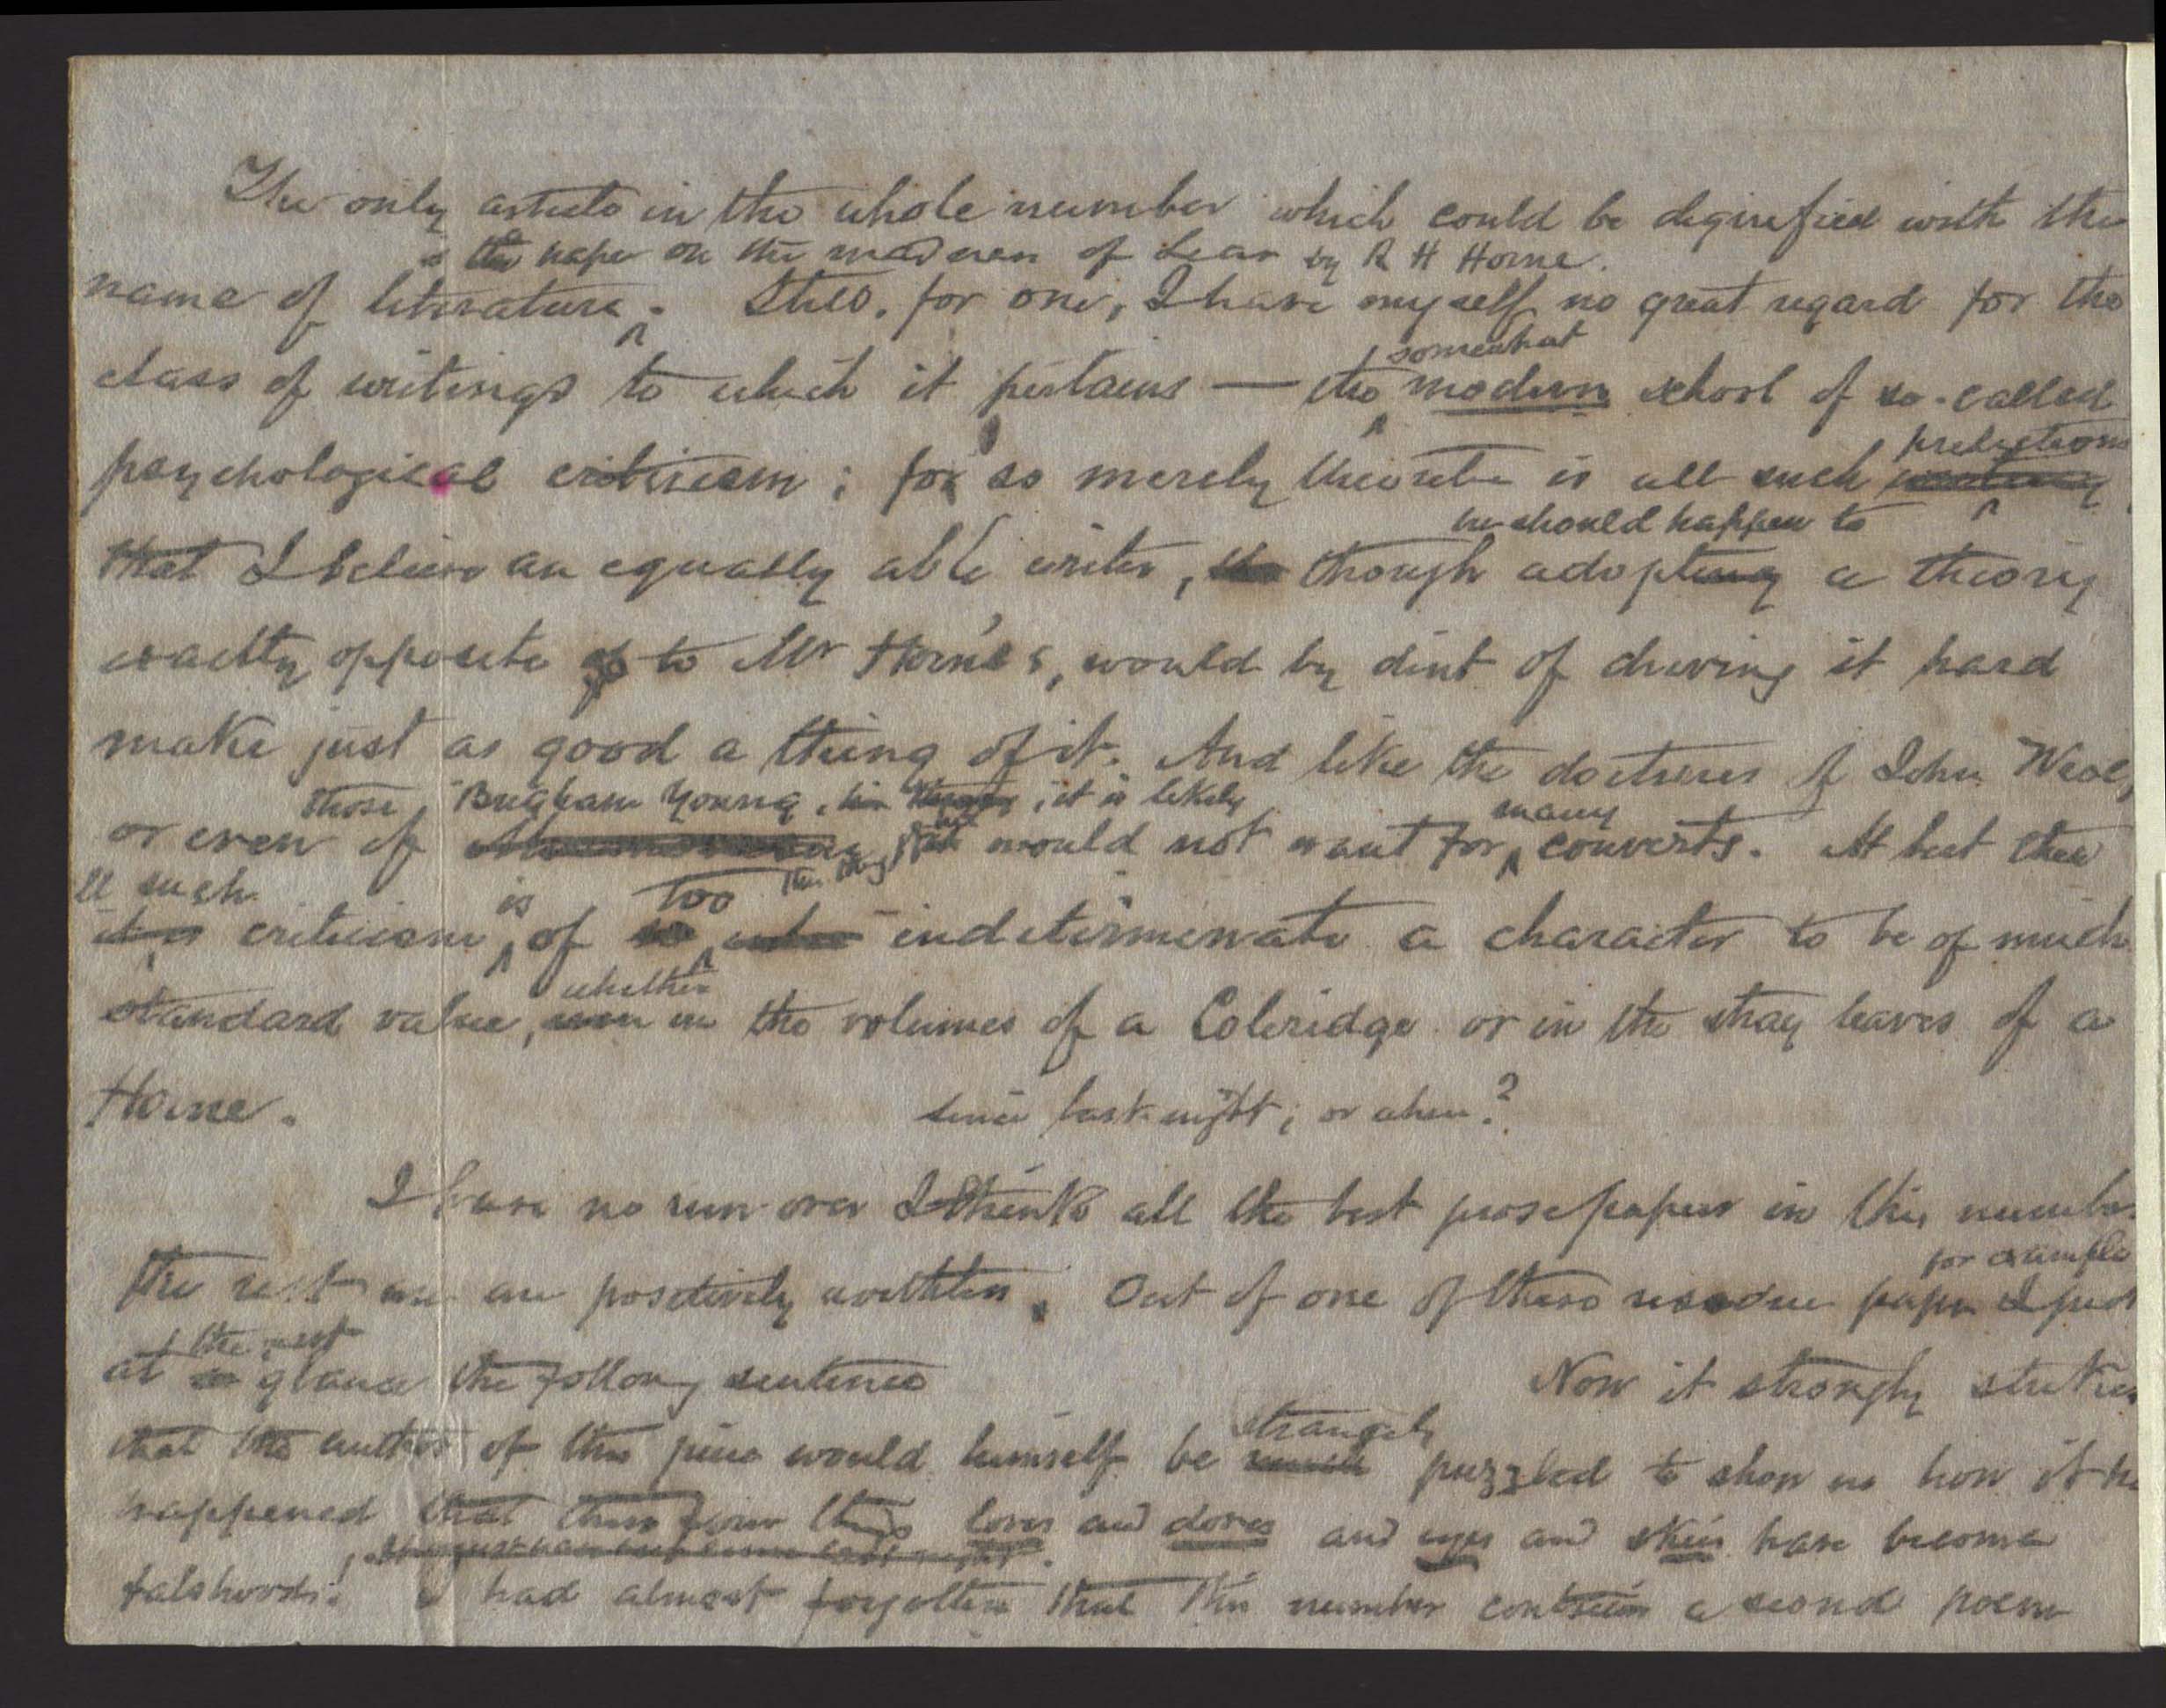 The only article in the whole number which could be dignified with the
is the paper on the madness of Lear by R H Horne.
name of literature. Still, for one, I have myself no great regard for the
somewhat
class of writings to which it pertains — the modern school of so-called
productions
psychological criticism; for so merely theoretic is all such
he should happen to
that I believe an equally able writer, though adopting a theory
exactly opposite to Mr Horne's, would by dint of driving it hard
make just as good a thing of it. And like the doctrines of John Wesley
those Brigham Young, it is likely
many
or even of would not want for converts. At best then
all such is too
it is criticism, of so indeterminate a character to be of much
whether
standard value, even in the volumes of a Coleridge or in the stray leaves of a
Horne.
since last night; or when?
I have no run over I think all the best prose papers in this number
for example
The rest are are positively written. Out of one of these residue paper I pick
the next
at glance the following sentence
Now it strongly strikes
strangely
that the author of this piece would himself be much puzzled to show us how it h
happened that these four things loves and doves and eyes and skies have become
falshoods. I had almost forgotten that this number contains a second poem